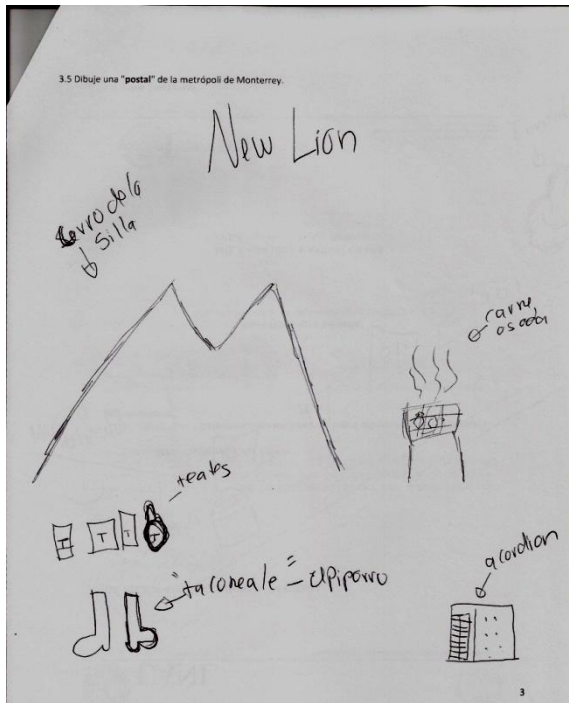 3.5 Dibuje una "postal" de la metrópoli de Monterrey.
New Lion
Cerro de la
Silla
carne
asada
T T T T
teatos
"taconeale" - el piporro
acordion
3